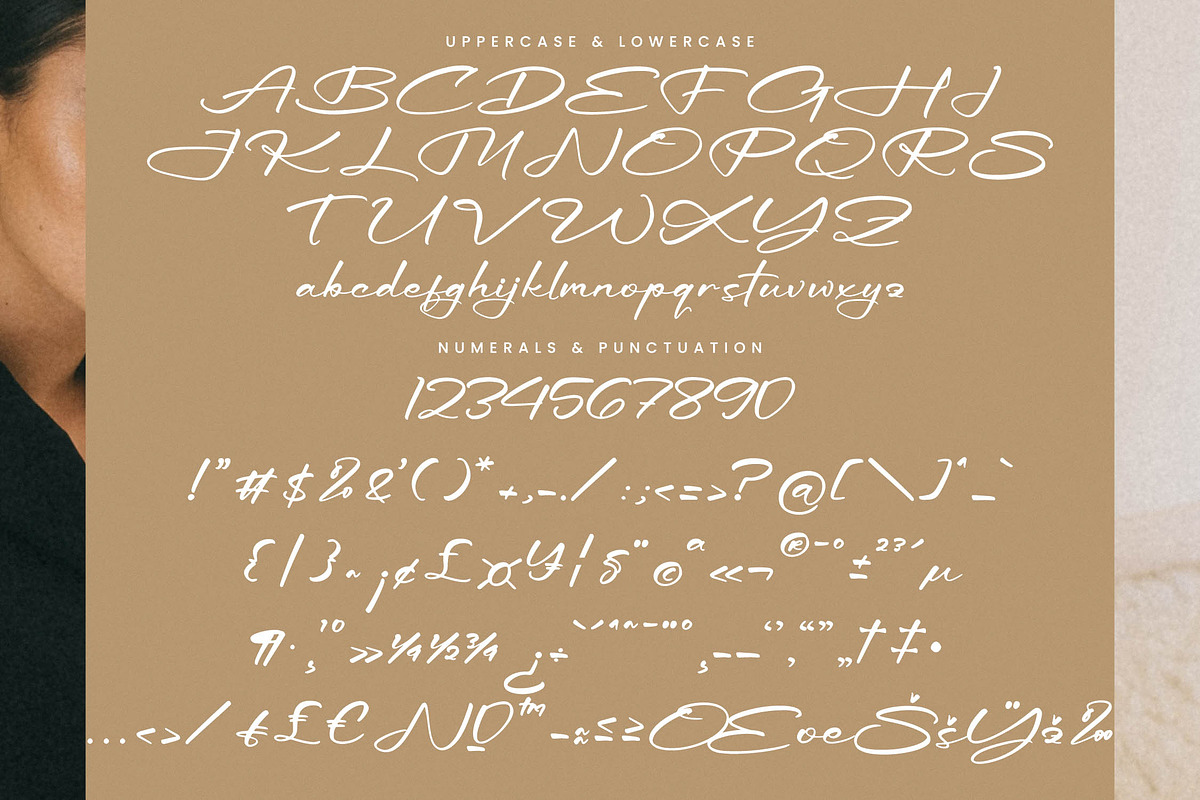 UPPERCASE & LOWERCASE
ABCDEFGHI
JKLMNOPQRS
TUVWXYZ
abcdefghijklmnopqrstuvwxyz
NUMERALS & PUNCTUATION
1234567890
!"#$%&'()*+,-./:;<=>?@[\]^_`
{|}~¡¢£¤¥¦§¨©ª«¬®¯°±²³´µ
¶·¸¹º»¼½¾¿÷`´ˆ˜¯¨°¸–—‘’‚“”„†‡•
…‹›⁄₣₤€№™−≈≤≥ŒœŠšŸž‰